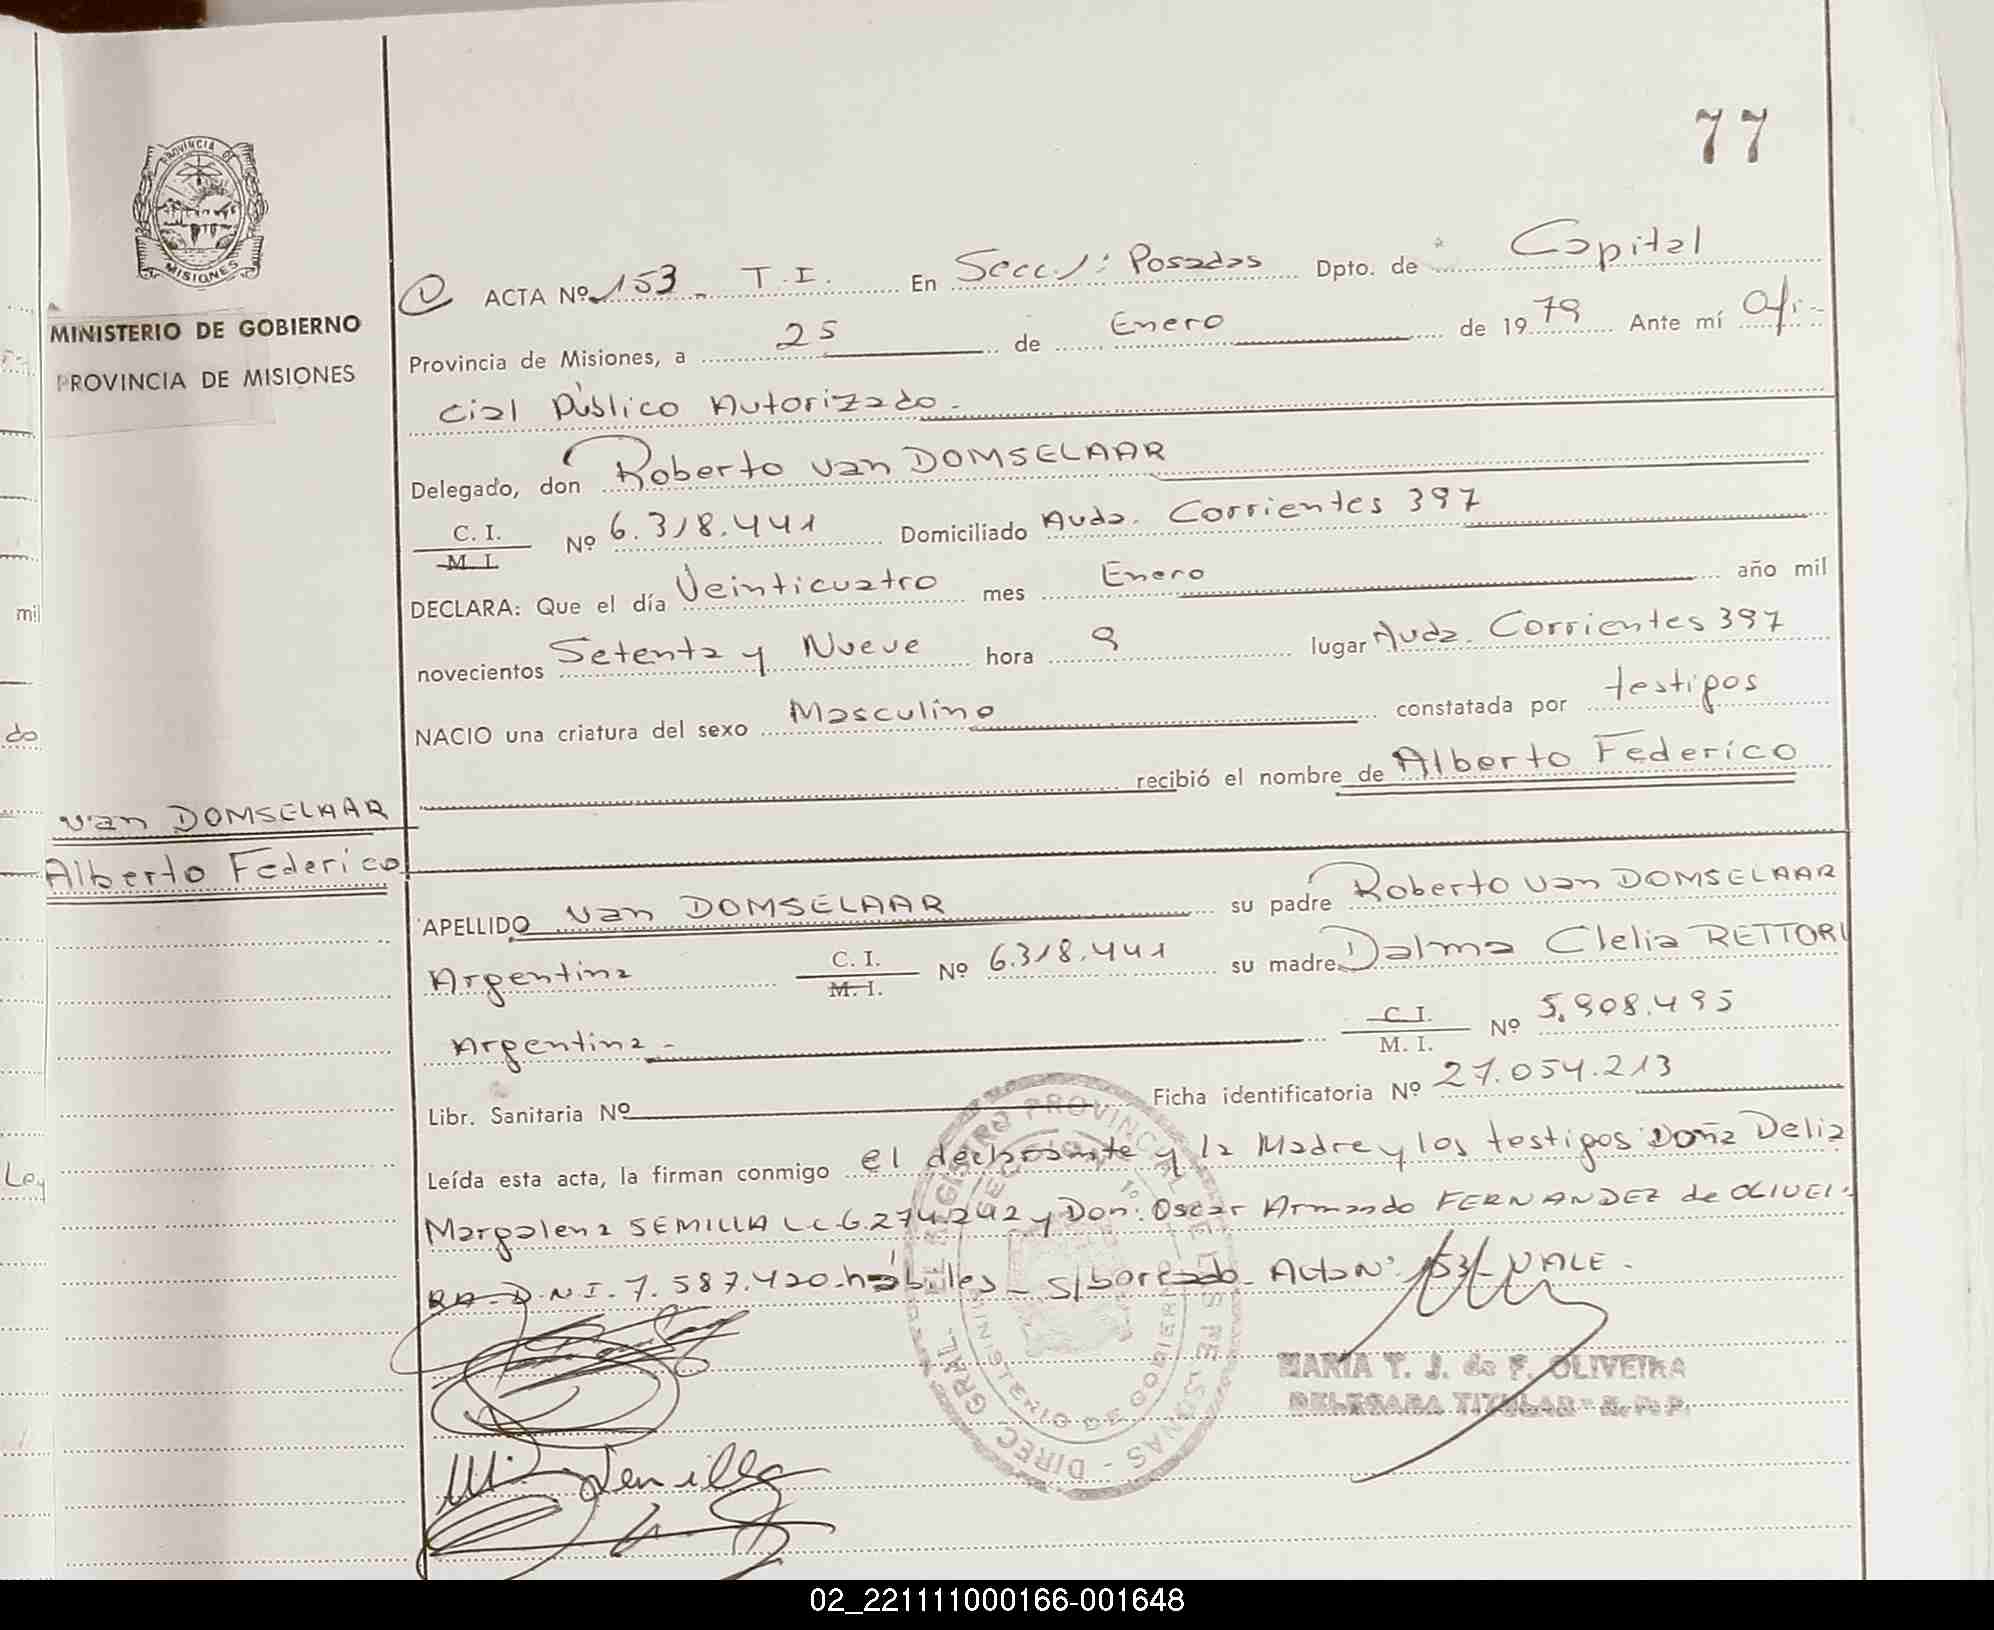 77
PROVINCIA DE
MISIONES
MINISTERIO DE GOBIERNO
PROVINCIA DE MISIONES
ACTA Nº 153_ T.I. En Secc. 1: Posadas Dpto. de Capital
Provincia de Misiones, a 25 de Enero de 1979 Ante mí Ofi-
cial Público Autorizado.-
Delegado, don Roberto van DOMSELAAR
C. I. / M. I. Nº 6.318.441 Domiciliado Avda. Corrientes 397
DECLARA: Que el día Veinticuatro mes Enero año mil
novecientos Setenta y Nueve hora 9 lugar Avda. Corrientes 397
NACIO una criatura del sexo Masculino constatada por testigos
recibió el nombre de Alberto Federico
van DOMSELAAR
Alberto Federico
APELLIDO van DOMSELAAR su padre Roberto van DOMSELAAR
Argentina C. I. / M. I. Nº 6.318.441 su madre Dalma Clelia RETTORI
Argentina - C. I. / M. I. Nº 5.908.495
Libr. Sanitaria Nº Ficha identificatoria Nº 27.054.213
Leída esta acta, la firman conmigo el declarante y la Madre y los testigos Doña Delia
Margalena SEMILLA LC 6.274.242 y Don: Oscar Armando FERNANDEZ de OLIVEI-
RA- D.N.I. 7.587.420 hábiles _ s/boreado_ Acta Nº 153_ VALE.
MARIA T. J. de F. OLIVEIRA
DELEGADA TITULAR
mil
do
02_221111000166-001648